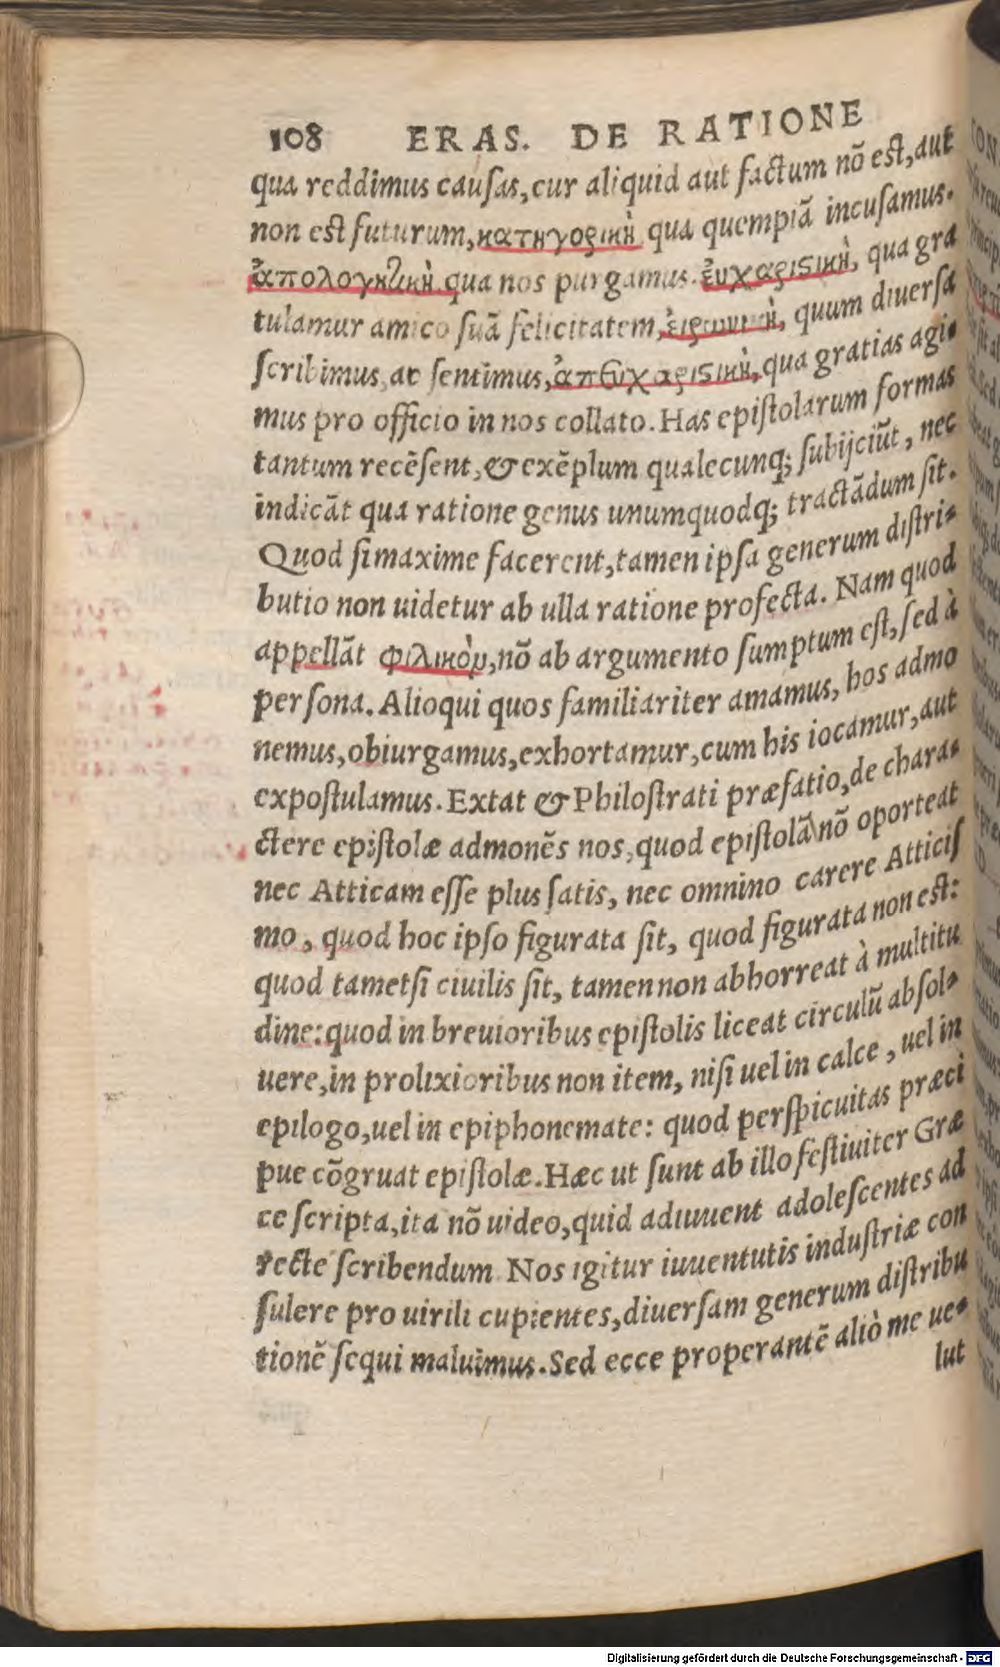 108 ERAS. DE RATIONE
qua reddimus cauſas, cur aliquid aut factum nõ eſt, aut
non eſt futurum, κατηγορικὴ qua quempiã incuſamus.
ἀπολογητικὴ qua nos purgamus. ἐυχαριστικὴ, qua gra
tulamur amico ſuã felicitatem, ἐιρωνικὴ, quum diuerſa
ſcribimus, ac ſentimus, ἀπευχαριστικὴ, qua gratias agi-
mus pro officio in nos collato. Has epiſtolarum formas
tantum recẽſent, & exẽplum qualecunq; ſubijciũt, nec
indicãt qua ratione genus unumquodq; tractãdum ſit.
Quod ſi maxime facerent, tamen ipſa generum diſtri-
butio non uidetur ab ulla ratione profecta. Nam quod
appellãt φιλικὸν, nõ ab argumento ſumptum eſt, ſed à
perſona. Alioqui quos familiariter amamus, hos admo
nemus, obiurgamus, exhortamur, cum his iocamur, aut
expoſtulamus. Extat & Philoſtrati præfatio, de chara-
ctere epiſtolæ admonẽs nos, quod epiſtolã nõ oporteat
nec Atticam eſſe plus ſatis, nec omnino carere Atticiſ
mo, quod hoc ipſo figurata ſit, quod figurata non eſt:
quod tametſi ciuilis ſit, tamen non abhorreat à multitu
dine: quod in breuioribus epiſtolis liceat circulũ abſol-
uere, in prolixioribus non item, niſi uel in calce, uel in
epilogo, uel in epiphonemate: quod perſpicuitas præci
pue cõgruat epiſtolæ. Hæc ut ſunt ab illo feſtiuiter Græ
ce ſcripta, ita nõ uideo, quid adiuuent adoleſcentes ad
recte ſcribendum. Nos igitur iuuentutis induſtriæ con
ſulere pro uirili cupientes, diuerſam generum diſtribu
tionẽ ſequi maluimus. Sed ecce properantẽ aliò me ue-
lut
Digitalisierung gefördert durch die Deutsche Forschungsgemeinschaft - DFG